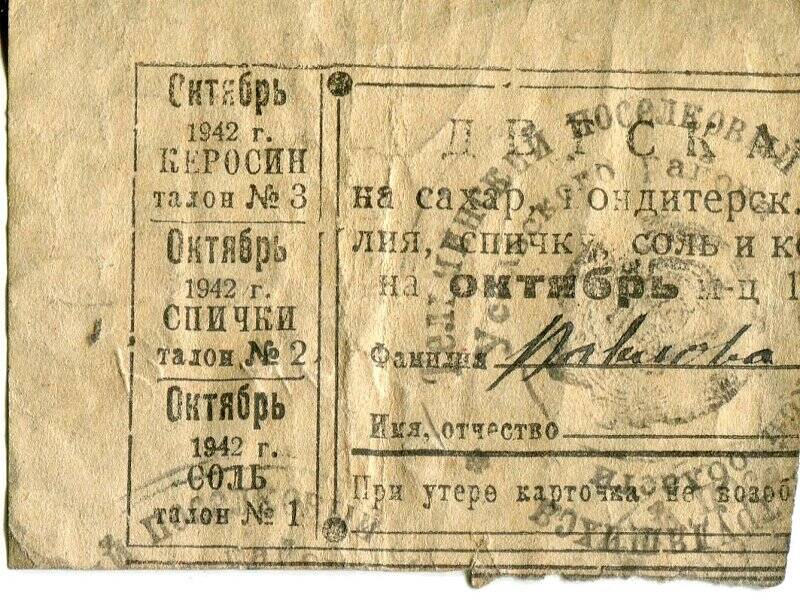 Октябрь
1942 г.
КЕРОСИН
талон № 3
Октябрь
1942 г.
СПИЧКИ
талон № 2
Октябрь
1942 г.
СОЛЬ
талон № 1
на сахар, кондитерск.
лия, спички, соль и ке
на октябрь м-ц 1
Фамилия
Имя, отчество
При утере карточка не возоб
поселковый
трудящихся